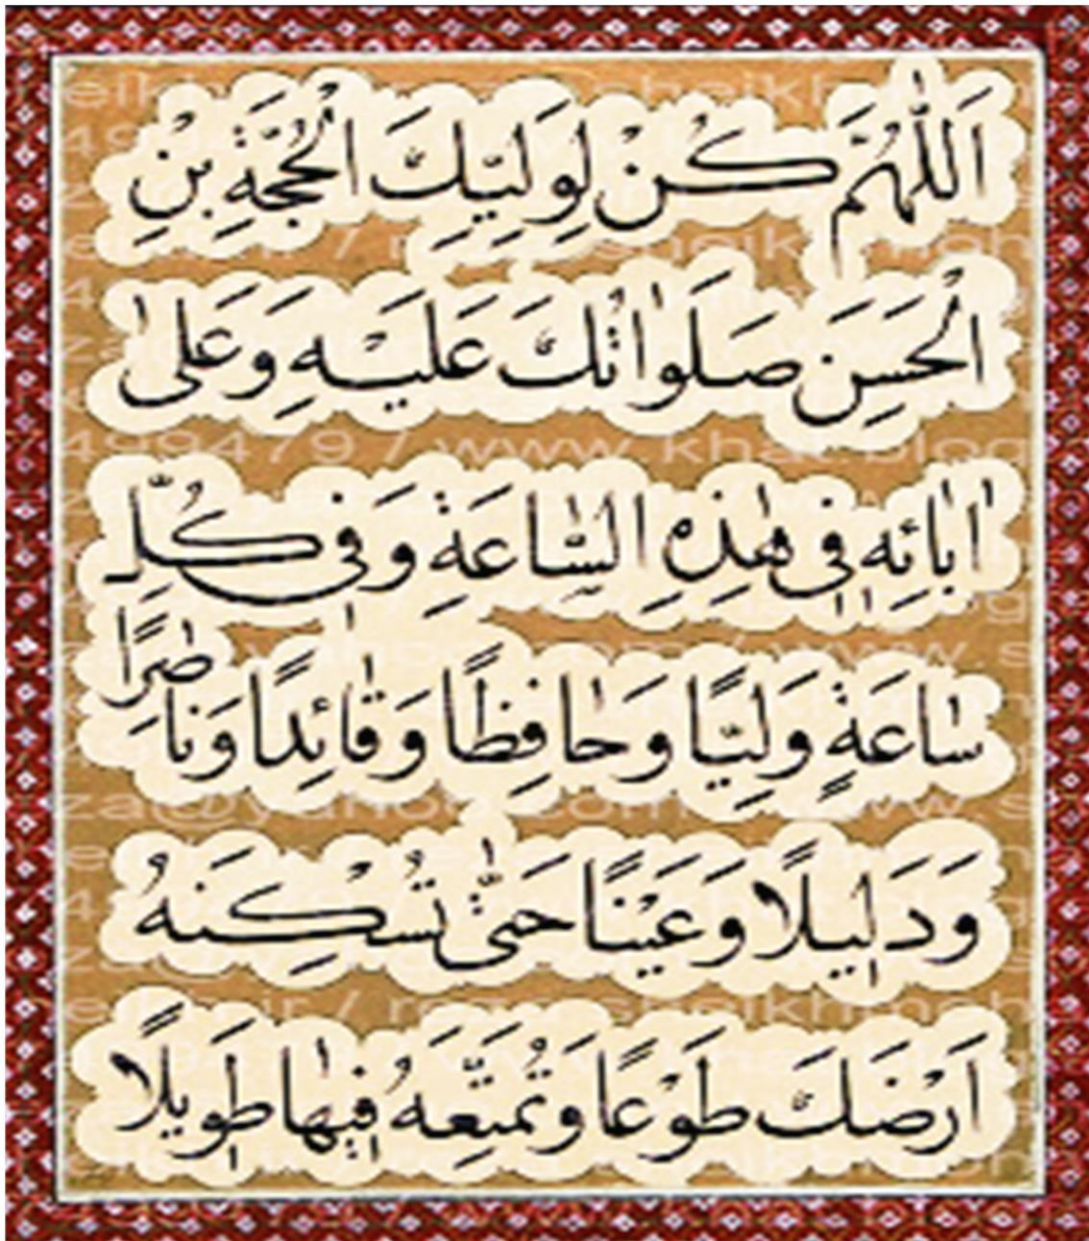 اَللّٰهُمَّ كُنْ لِوَلِيِّكَ الْحُجَّةِ بْنِ
الْحَسَنِ صَلَواتُكَ عَلَيْهِ وَعَلىٰ
اٰبائِهِ فی هٰذِهِ السّاعَةِ وَفی كُلِّ
ساعَةٍ وَلِيًّا وَحافِظًا وَقائِدًا وَناصِرًا
وَدَلِيلًا وَعَيْنًا حَتّىٰ تُسْكِنَهُ
اَرْضَكَ طَوْعًا وَتُمَتِّعَهُ فِيها طَوِيلًا